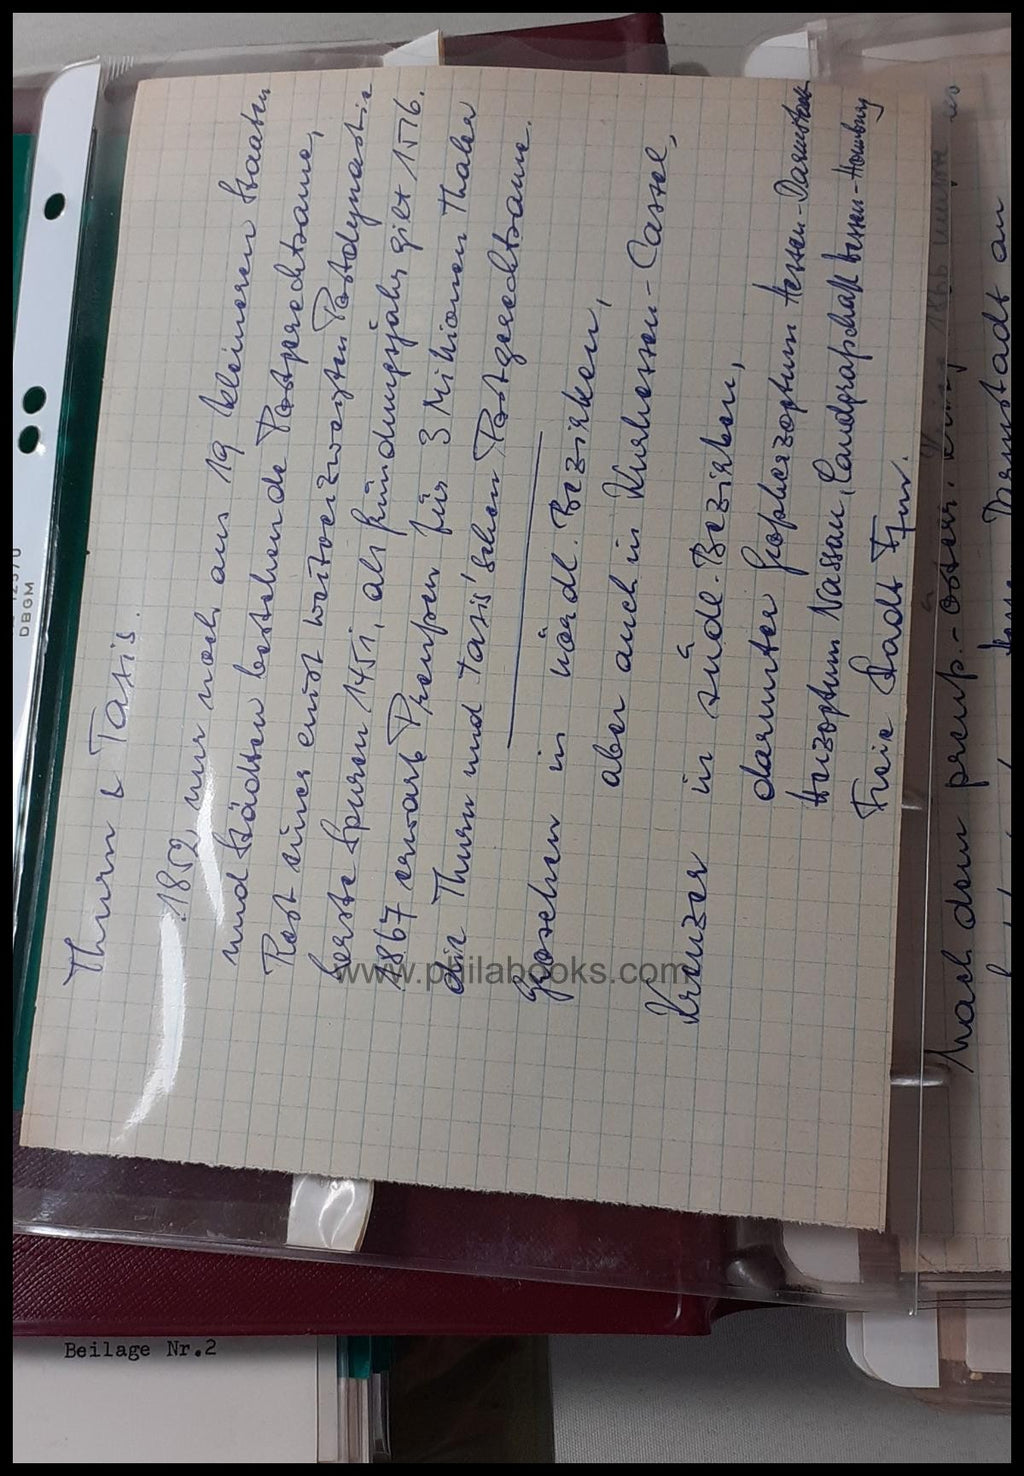 Thurn & Taxis.
1852, nur noch aus 19 kleineren Staaten
und Städten bestehende Postgerechtsame,
Rest einer einst weitverzweigten Postdynastie
erste Spuren 1451, als Gründungsjahr gilt 1516.
1867 erwarb Preußen für 3 Millionen Thaler
die Thurn und Taxis'schen Postgerechtsame.
Groschen in nördl. Bezirken,
aber auch in Kurhessen-Cassel,
Kreuzer in südl. Bezirken,
darunter Großherzogtum Hessen-Darmstadt
Herzogtum Nassau, Landgrafschaft Hessen-Homburg
Freie Stadt Ffm.
Nach dem preuß.-österr. Krieg
Darmstadt an
DBGM
Beilage Nr.2
www.philabooks.com